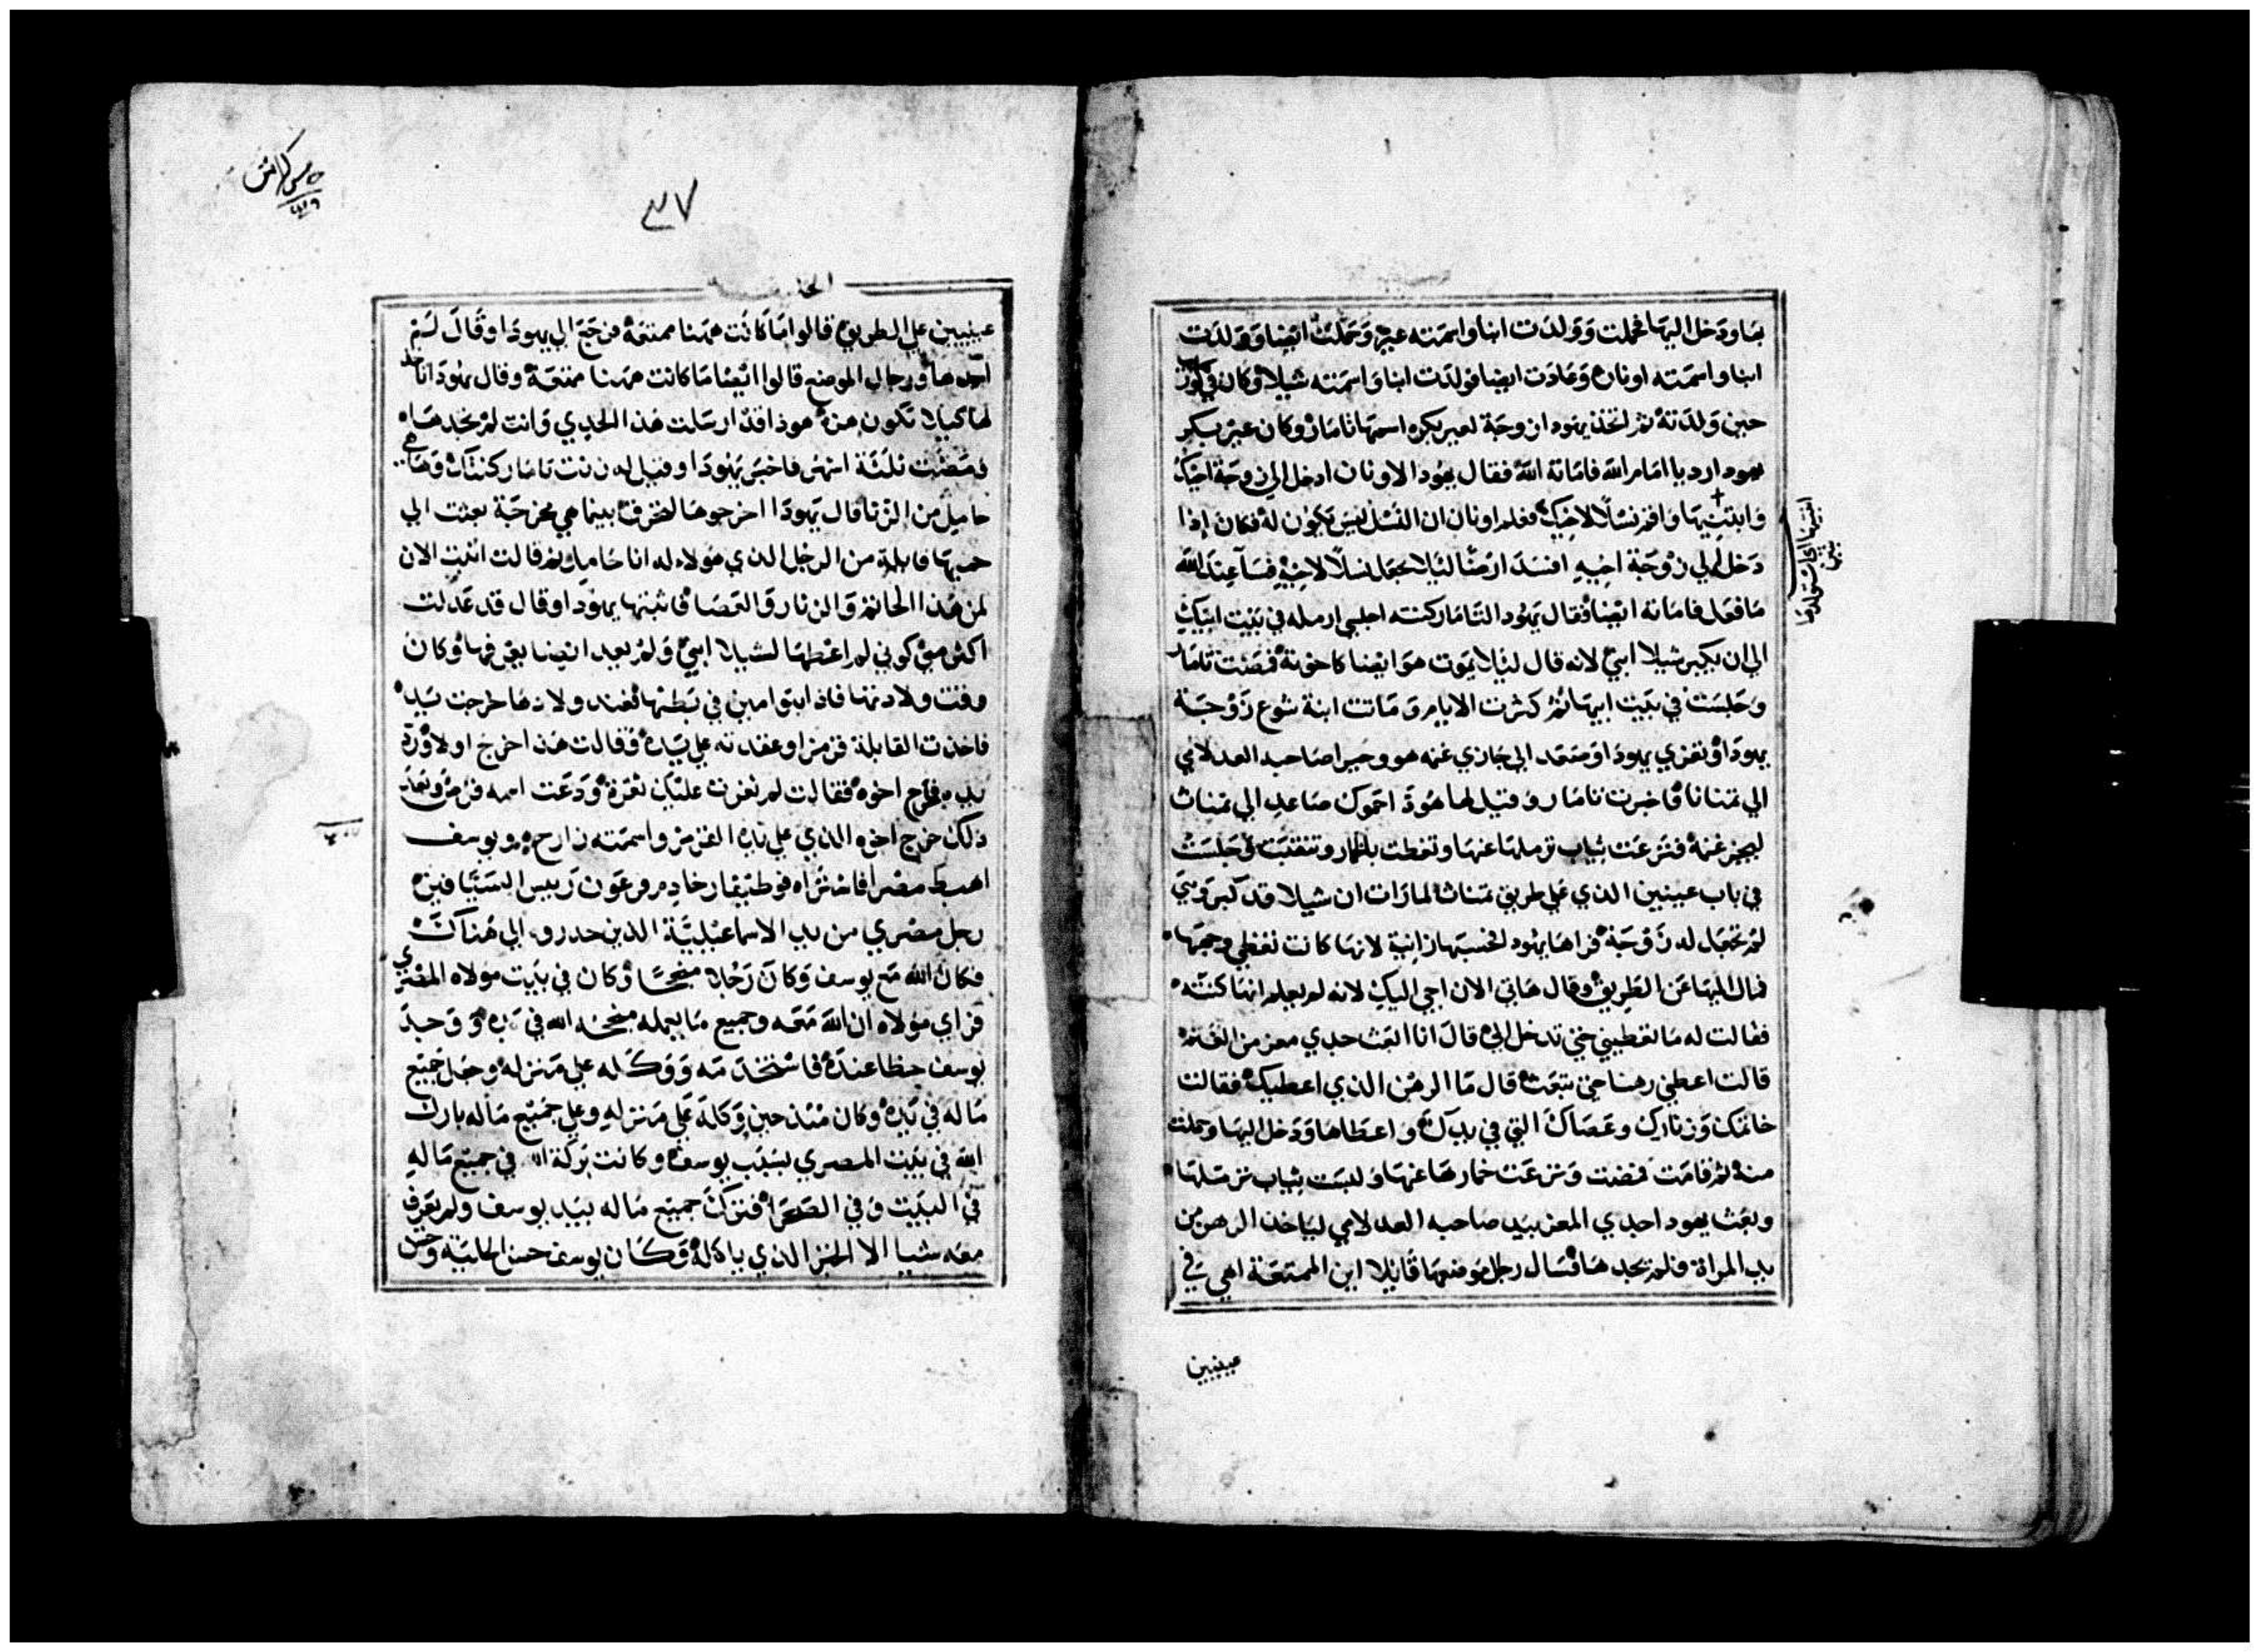 بها ودخل اليها فحملت وولدت ابنا واسمته عير وحملت ايضا وولدت
ابنا واسمته اونان وعادت ايضا فولدت ابنا واسمته شيلا وكان في
حين ولدته ثم اتخذ يهودا زوجة لعير بكره اسمها ثامار وكان عير بكر
يهودا رديا امام الله فاماته الله فقال يهودا لاونان ادخل الي زوجة اخيك
وابتنيها واقم نسلا لاخيك فعلم اونان ان النسل ليس يكون له فكان اذا
دخل الي زوجة اخيه افسد ارضا ليلا يجعل نسلا لاخيه فسآ عند الله
ما فعل فاماته ايضا فقال يهودا لثامار كنته اجلسي ارمله في بيت ابيك
الي ان يكبر شيلا ابني لانه قال ليلا يموت هو ايضا كاخوته فمضت تامار
وجلست في بيت ابيها ثم كثرت الايام وماتت ابنة شوع زوجة
يهودا وتعزي يهودا وصعد الي جازي غنمه هو وحيرا صاحبه العدلامي
الي تمناثا فاخبرت تامار وقيل لها هوذا حموك صاعد الي تمناث
ليجز غنمه فنزعت ثياب ترملها عنها وتغطت بالخمار وتنقبت وجلست
في باب عينين الذي علي طريق تمناث لما رات ان شيلا قد كبر وهي
لم تجعل له زوجة فراها يهودا فحسبها زانية لانها كانت تغطي وجهها
فمال اليها عن الطريق وقال هاتي الان اجي اليك لانه لم يعلم انها كنته
فقالت له ما تعطيني حتي تدخل الي قال انا ابعث جدي معز من الغنم
قالت اعطني رهنا حتي تبعث قال ما الرهن الذي اعطيك فقالت
خاتمك وزنارك وعصاك التي في يدك واعطاها ودخل اليها وحملت
منه ثم قامت فمضت ونزعت خمارها عنها ولبست ثياب ترملها
وبعث يهودا جدي المعز بيد صاحبه العدلامي لياخذ الرهن من
يد المراة فلم يجدها فسال رجل موضعها قايلا اين الممتعة اهي في
عينين
٣٧
عينين علي الطريق قالوا ما كانت ههنا ممتعة فرجع الي يهودا وقال لم
اجدها ورجال الموضع قالوا ايضا ما كانت ههنا ممتعة وقال يهودا تاخذ
لها كيلا تكون هزة هوذا قد ارسلت هذا الجدي وانت لم تجدها
فمضت ثلثة اشهر فاخبر يهودا وقيل له زنت تامار كنتك وها هي
حامل من الزنا قال يهودا اخرجوها لتحرق بينما هي مخرجة بعثت الي
حميها قايلة من الرجل الذي هولاء له انا حامل ثم قالت اثبت الان
لمن هذا الخاتم والزنار والعصا فاثبتها يهودا وقال قد عدلت
اكثر مني كوني لم اعطها لشيلا ابني ولم يعد ايضا يعرفها وكان
وقت ولادتها فاذا بتوامين في بطنها فعند ولادها خرجت يد
فاخذت القابلة قرمزا وعقدته علي يده وقالت هذا خرج اولا ورد
يده فخرج اخوه فقالت لم ثغرت عليك ثغرة ودعت اسمه فرص وبعد
ذلك خرج اخوه الذي علي يده القرمز واسمته زارح ويوسف
اهبط مصر فاشتراه فوطيفار خادم فرعون رييس السيافين
رجل مصري من يد الاسماعيلية الذين حدروه الي هناك
فكان الله مع يوسف وكان رجلا منجحا وكان في بيت مولاه المصري
فراي مولاه ان الله معه وجميع ما يعمله منجحه الله في يده ووجد
يوسف حظا عنده فاستخدمه ووكله علي منزله وجعل جميع
ماله في يده وكان منذ حين وكله علي منزله وعلي جميع ماله بارك
الله في بيت المصري بسبب يوسف وكانت بركة الله في جميع ماله
في البيت وفي الصحرا فترك جميع ماله بيد يوسف ولم يعرف
معه شيا الا الخبز الذي ياكله وكان يوسف حسن الحلية وحسن